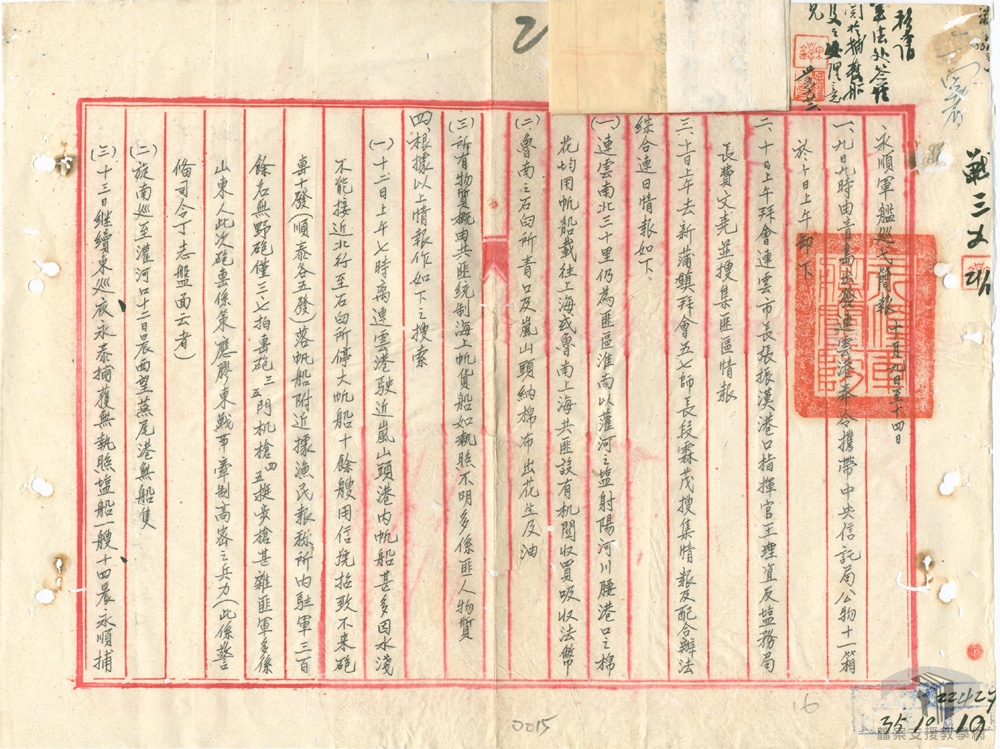 永順軍艦巡弋簡報 十一月九日至十四日
一、九日九時由青島出發連雲港奉令攜帶中央信託局公物十一箱
於十日上午卸下
二、十日上午拜會連雲市長張振漢港口指揮官王理直及塩務局
長費文堯並搜集匪區情報
三、十日上午去新蒲鎮拜會五七師長段霖茂搜集情報及配合辦法
綜合連日情報如下、
(一)連雲南北三十里仍為匪區淮南以灌河之塩射陽河川腰港口之棉
花均用帆船載往上海或魯南上海共匪設有机関収買吸収法幣
(二)魯南之石臼所青口及嵐山頭納棉布出花生及油
(三)所有物質概由共匪統制海上帆貨船如執照不明多係匪人物質
四、根據以上情報作如下之搜索
(一)十二日上午七時离連雲港駛近嵐山頭港內帆船甚多因水淺
不能接近北行至石臼所停大帆船十餘艘用信號招致不来砲
轟十發(順泰各五發)落帆船附近據漁民報称所內駐軍三百
餘名無野砲僅三七拍擊砲三五門机槍四五挺步槍甚雜匪軍多係
山東人此次砲轟係策應膠東戰事牽制高密之兵力(此係警
俻司令丁志盤面云者)
(二)旋南巡至灌河口十二日晨西望燕尾港無船隻
(三)十三日継續東巡夜永泰捕獲無執照塩船一艘十四晨永順捕
戰三
軍法处簽註
関於捕獲船
隻之處理意
見
0015
16
22427
35 10 19
檔案支援教學網